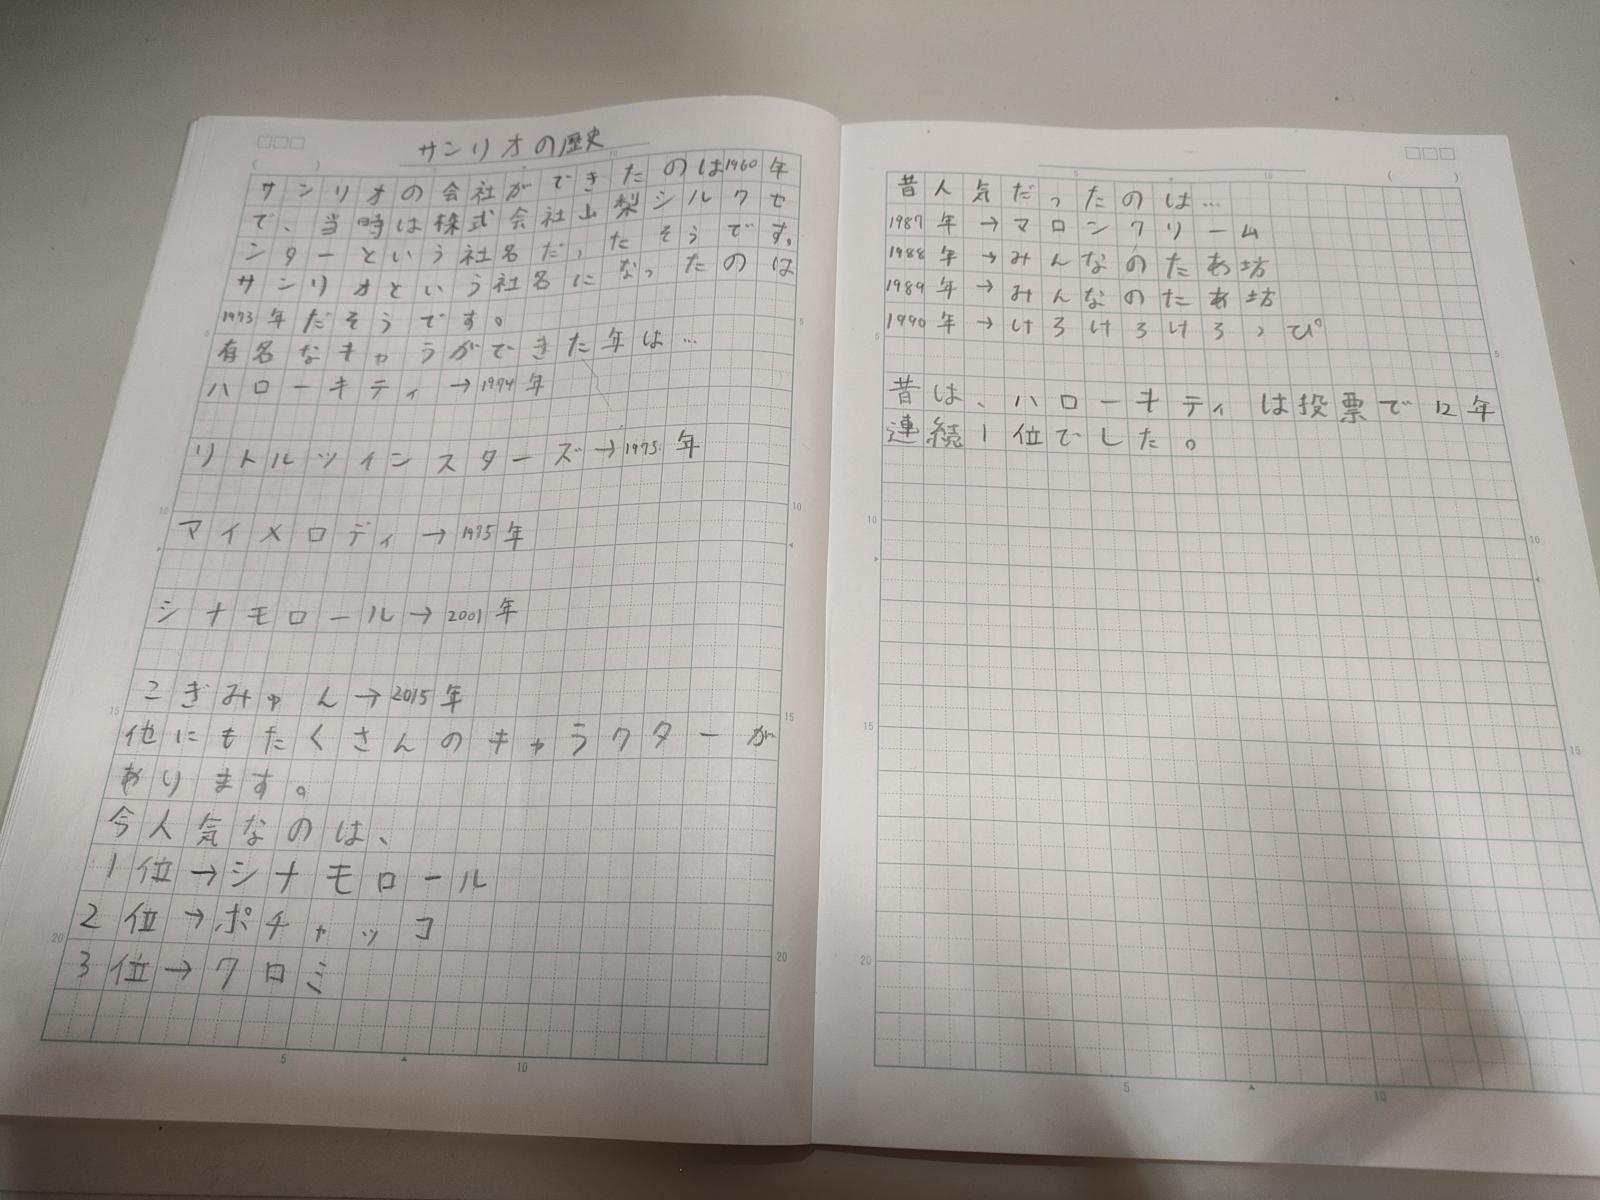 サンリオの歴史
サンリオの会社ができたのは1960年
で、当時は株式会社山梨シルクセ
ンターという社名だったそうです。
サンリオという社名になったのは
1973年だそうです。
有名なキャラができた年は…
ハローキティ→1974年
リトルツインスターズ→1975年
マイメロディ→1975年
シナモロール→2001年
こぎみゅん→2015年
他にもたくさんのキャラクターが
あります。
今人気なのは、
1位→シナモロール
2位→ポチャッコ
3位→クロミ
昔人気だったのは…
1987年→マロンクリーム
1988年→みんなのたあ坊
1989年→みんなのたあ坊
1990年→けろけろけろっぴ
昔は、ハローキティは投票で12年
連続1位でした。
5
10
15
20
5
10
15
20
5
10
5
10
15
20
5
10
15
5
10